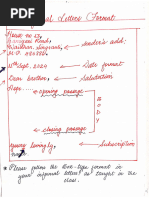 Informal Letters Format
House no 63,
Ranageri Road,
Waidhan, Singrauli,
M.P. 486886.
sender's add.
11th Sept, 2024
Date format
Dear brother,
Salutation
opening passage
B
o
d
y
closing passage
yours lovingly,
Subscription
Please follow the Box-type format in
your informal letters as taught in the
class.